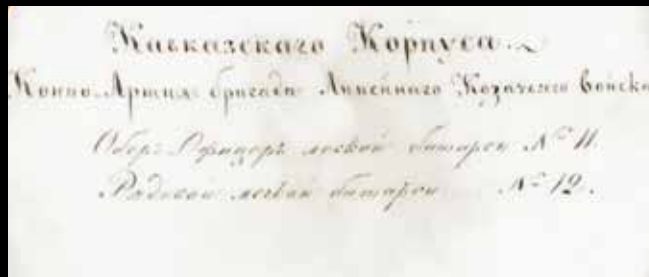 Кавказскаго Корпуса.
Конно-Артил: бригада Линейнаго Козачьяго Войска
Оберъ Офицеръ легкой батареи № 11.
Рядовой легкой батареи № 12.